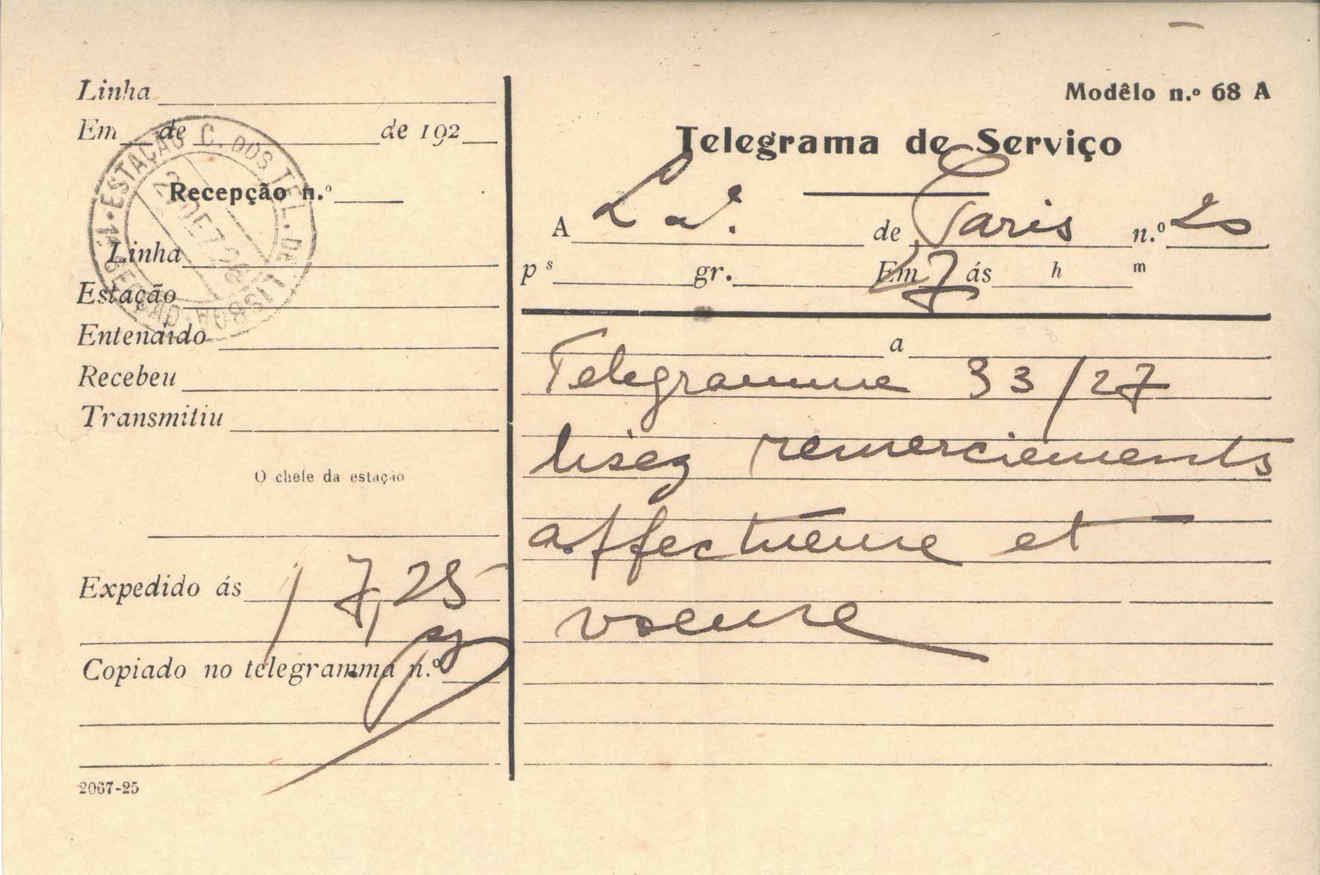 Linha
Em de de 192
Recepção n.º
Linha
Estação
Entendido
Recebeu
Transmitiu
O chefe da estação
Expedido ás 17,25
Copiado no telegramma n.º
2067-25
ESTAÇÃO C. DOS TEL. DE LISBOA
Modêlo n.º 68 A
Telegrama de Serviço
A Lxª. de Paris n.º 20
p s gr. Em 27 ás h m
a
Telegramme 33/27
lisez remerciements
affectueuse et
voeure